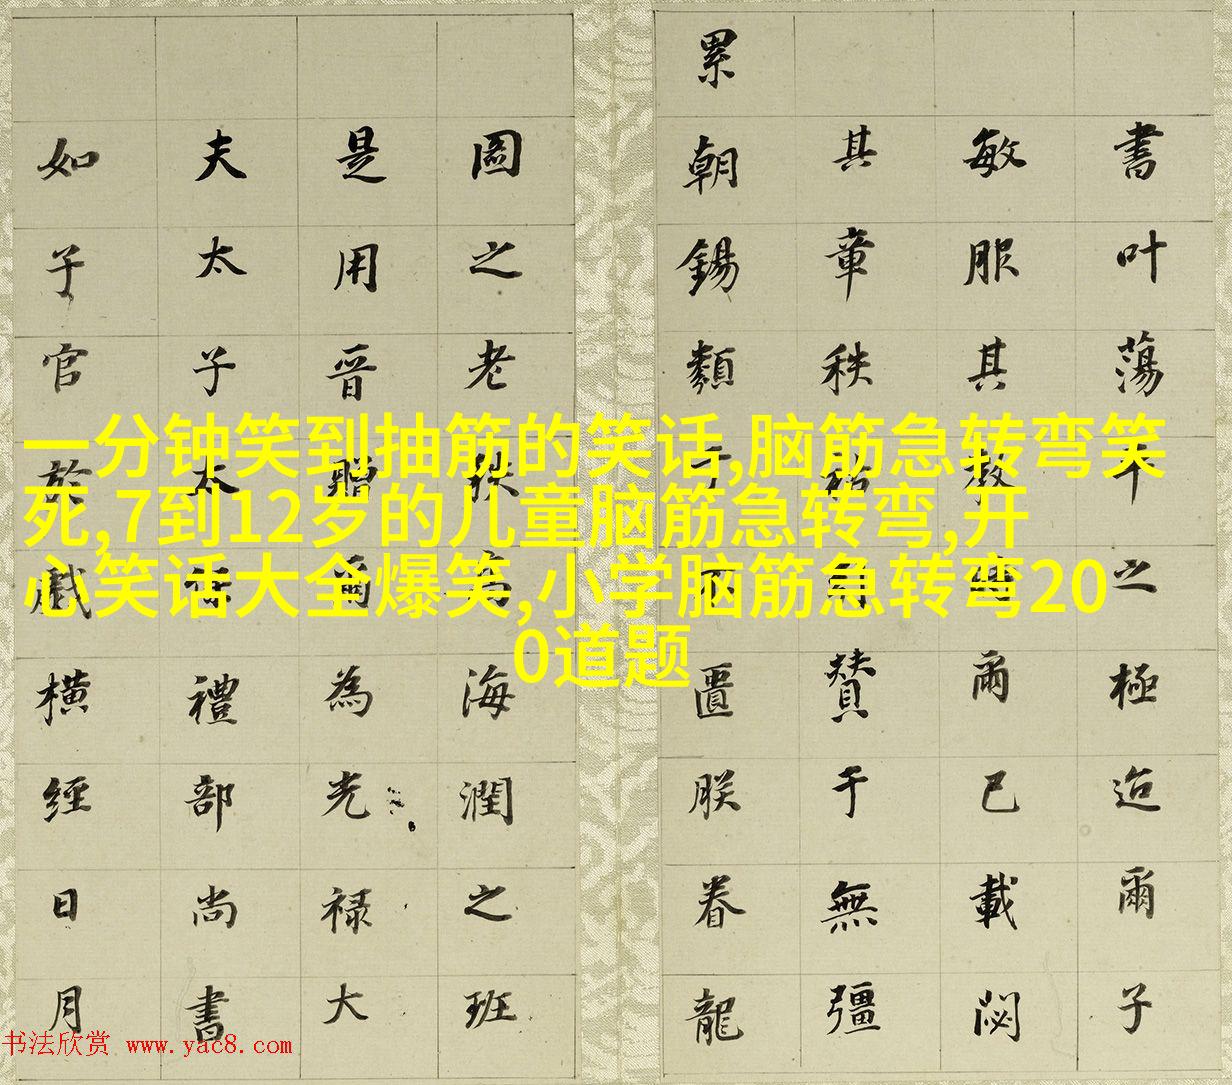 書叶蕩平之極迨爾子
敏服其教爾已載閟
其章秩賛于無彊
累朝錫類于不匱朕眷龍
圖之老秩為海潤之班
是用晉贈爾為光禄大
夫太子太保禮部尚書
如子官於戲橫經日月
一分钟笑到抽筋的笑话,脑筋急转弯笑
死,7到12岁的儿童脑筋急转弯,开
心笑话大全爆笑,小学脑筋急转弯20
0道题
书法欣赏 www.yac8.com